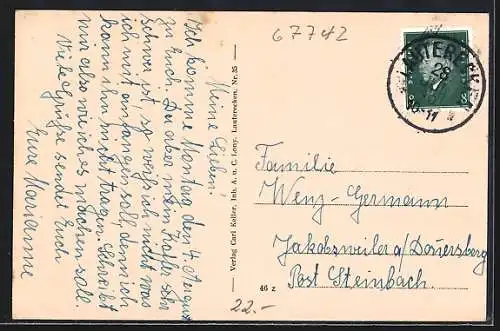 67742
LAUTERECKEN
28
10-11
8
Meine Lieben!
Ich komme Montag den 4 August
zu Euch. Da aber mein Koffer sehr
schwer ist, so weiß ich nicht was
ich mit anfangen soll, denn ich
kann ihn nicht tragen. Schreibt
mir also wie ich es machen soll.
Viele Grüße sendet Euch
Eure Marianne
— Verlag Carl Keller, Inh. A. u. C. Lony, Lauterecken, Nr. 35 —
46 z
22.-
Familie
Wenz-Germann
Jakobsweiler a/Donnersberg
Post Steinbach.